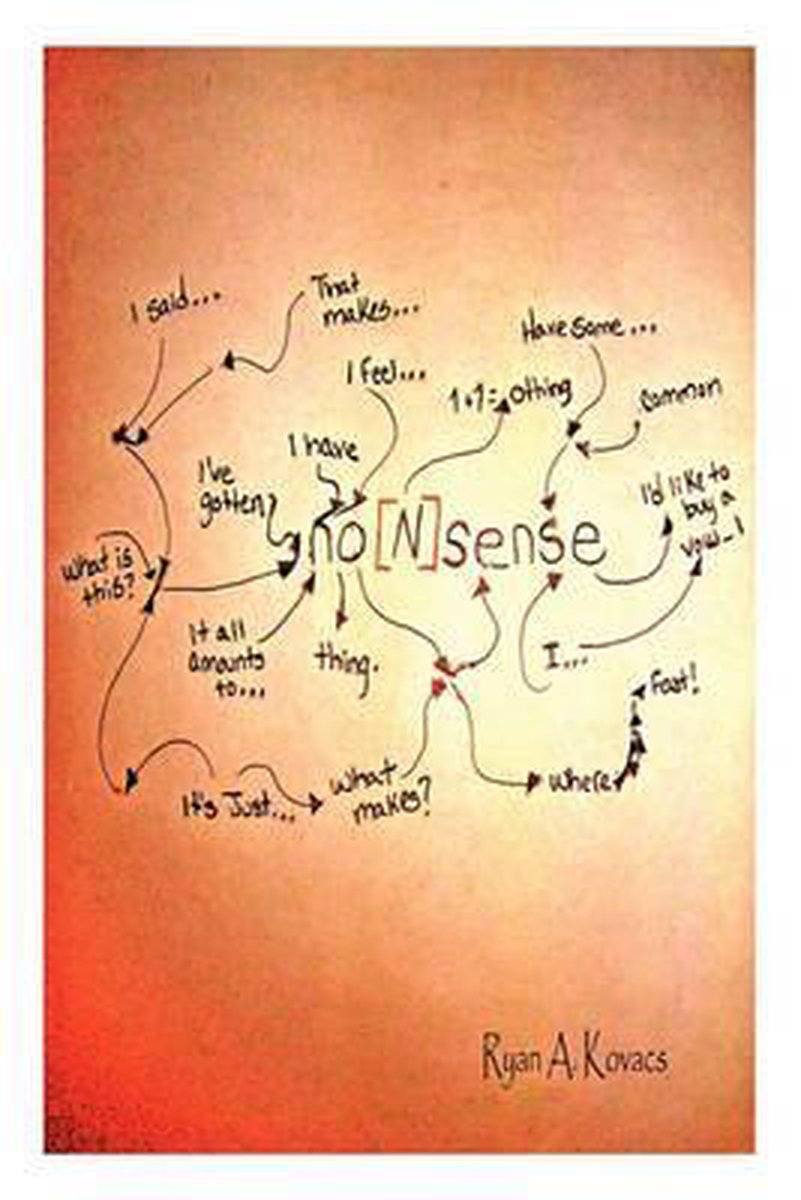 I said...
That
makes...
Have some...
I feel...
1+1= othing
common
I have
I've
gotten
I'd like to
buy a
vow_l
no[N]sense
What is
this?
It all
amounts
to...
thing.
I...
Fast!
It's Just...
What
makes?
where
Ryan A. Kovacs